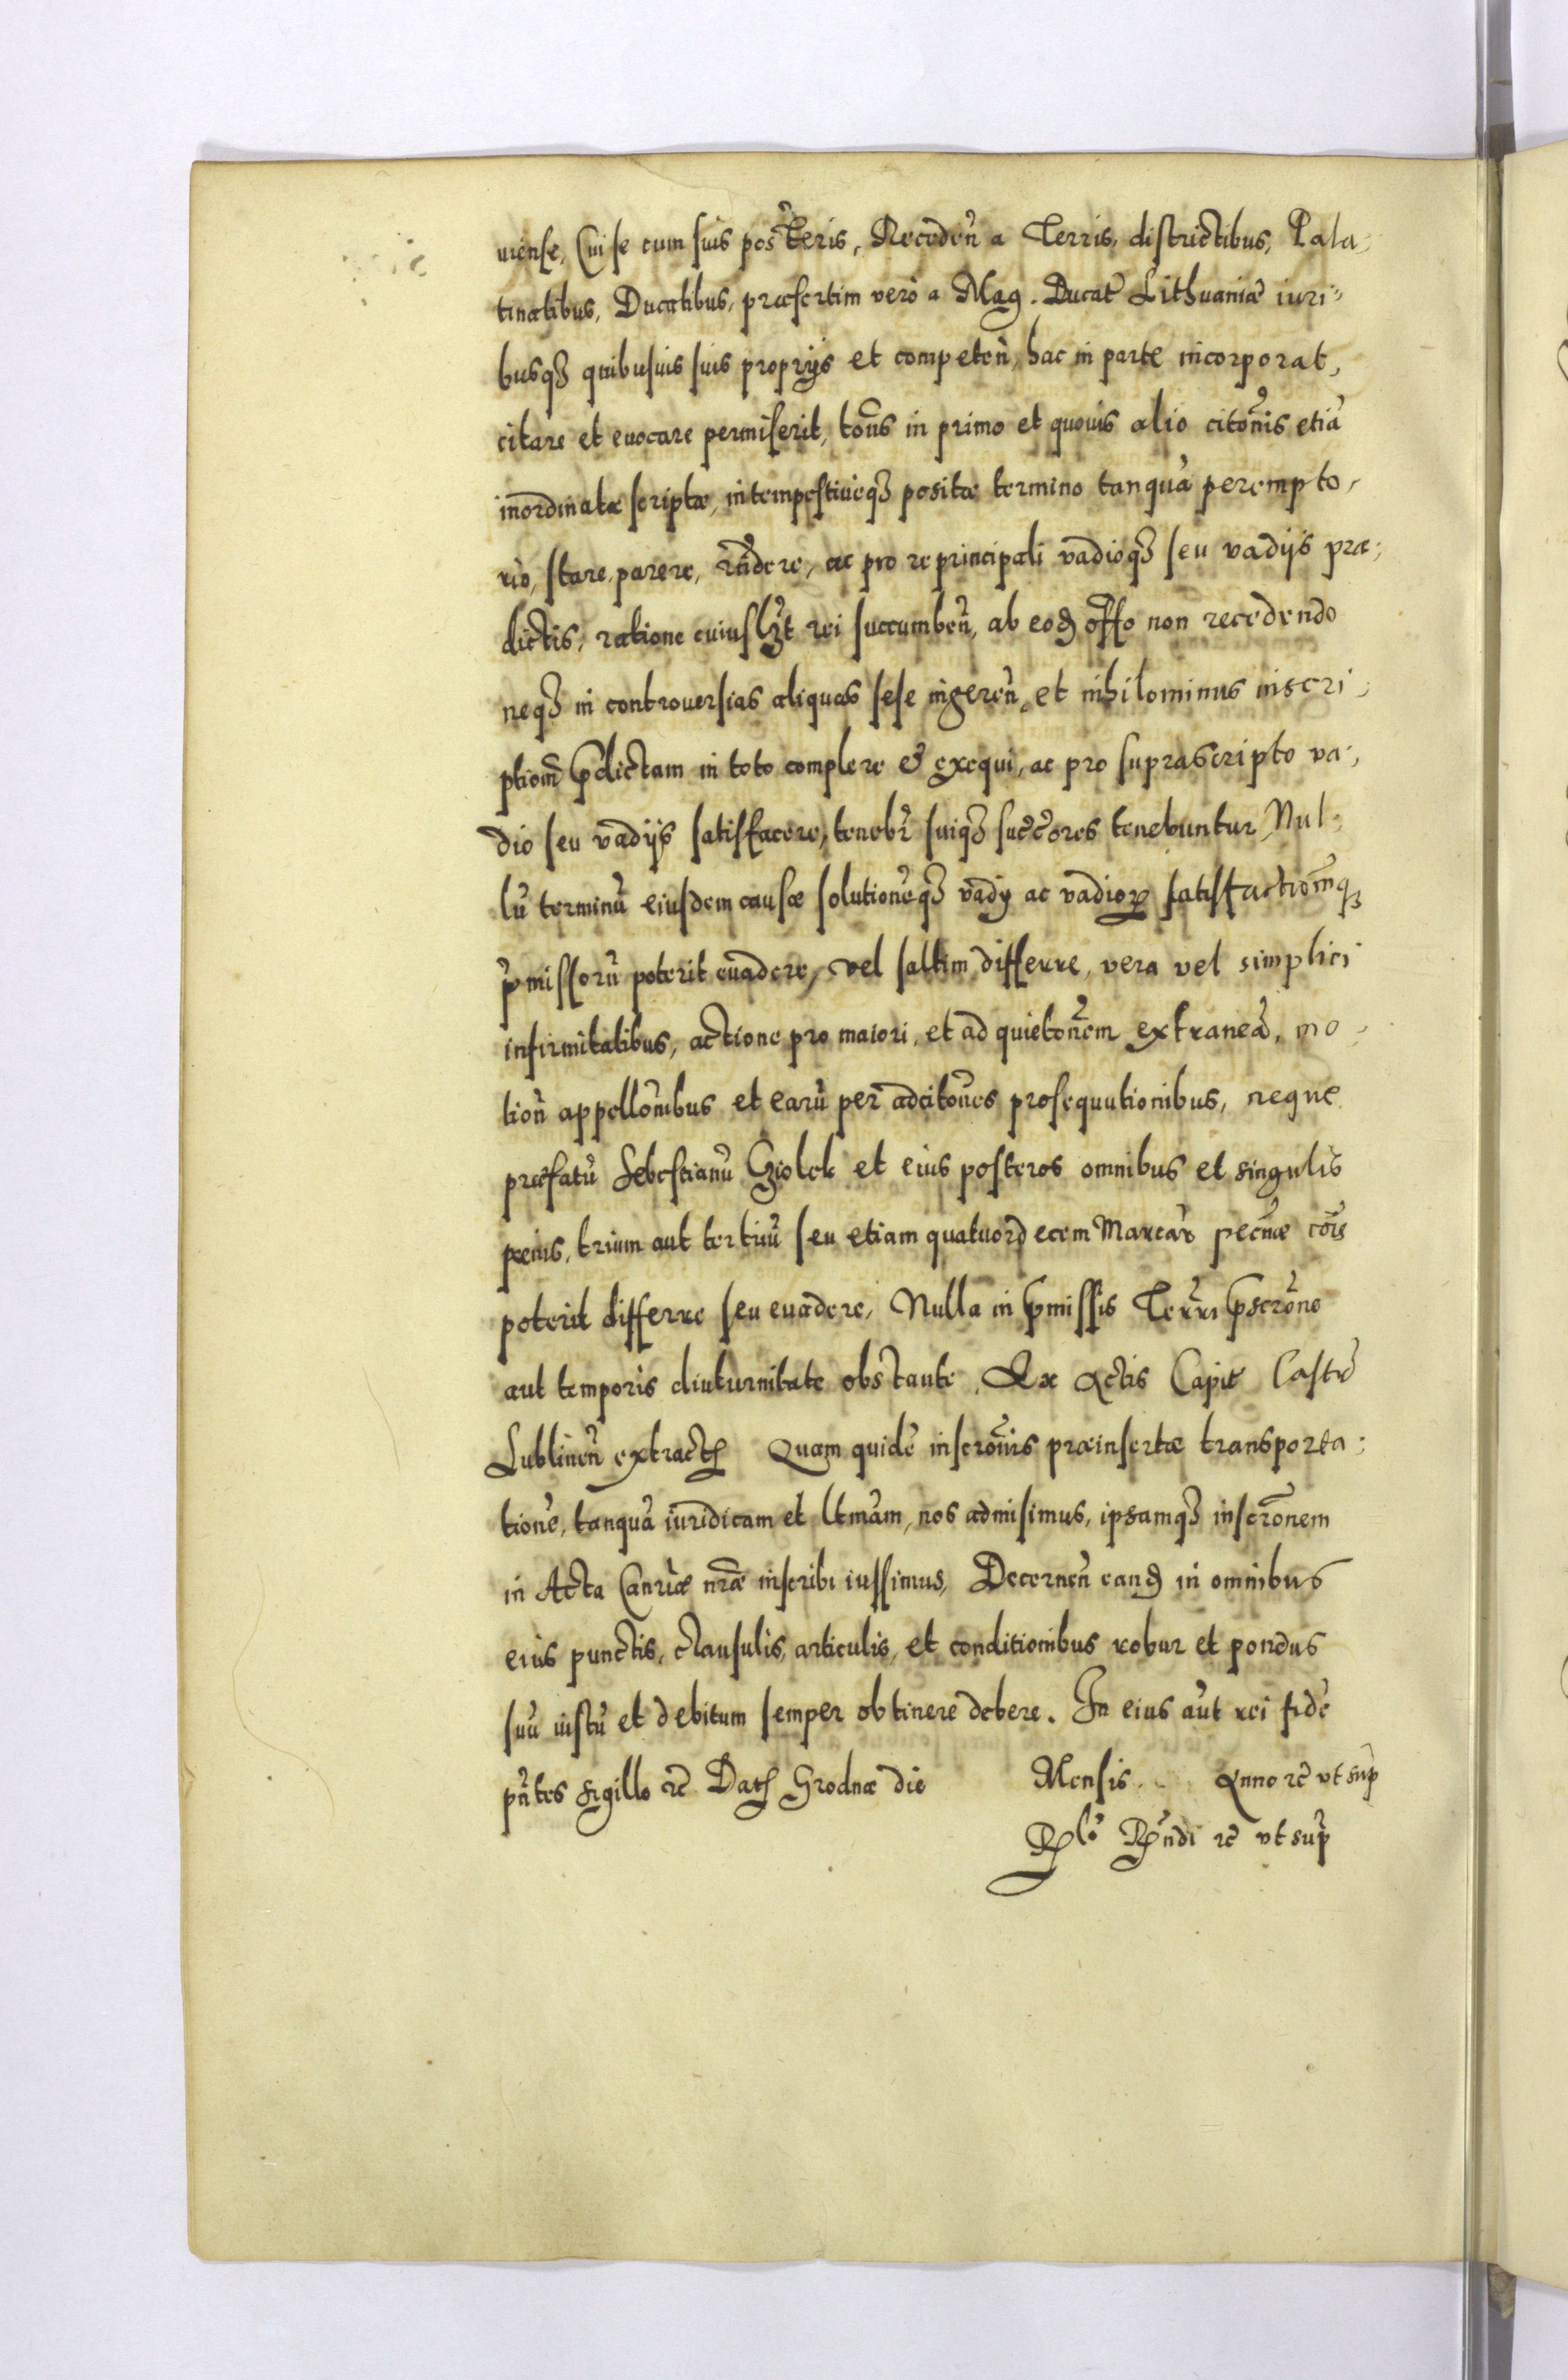 uiense, Cui se cum suis posteris, Recedeñ a Terris, districtibus, Pala-
tinatibus, Ducatibus, præsertim vero a Mag. Ducat Lithuaniæ iuri-
busqȝ quibusuis suis proprijs et competeñ, hac in parte incorporat,
citare et euocare permiserit, toñs in primo et quouis alio citoñis etiã
inordinatæ scriptæ, intempestiueqȝ positæ termino tanquã perempto-
rio, stare, parere, rñdere, ac pro re principali vadioqȝ seu vadijs præ-
dictis, ratione cuiuslȝt rei succumbeñ, ab eod offo non recedendo
neqȝ in controuersias aliquas sese ingereñ, et nihilominus inscri-
ptioñ p̃dictam in toto complere & exequi, ac pro suprascripto va-
dio seu vadijs satisfacere, tenebr̃ suiqȝ succ̃ores tenebuntur, Nul-
lũ terminũ eiusdem causæ solutionẽqȝ vadij ac vadioꝝ satisfactioñqȝ
p̃missorũ poterit euadere, vel saltim differre, vera vel simplici
infirmitatibus, actione pro maiori, et ad quietoñem extraneã, mo-
tioñ appelloñibus et earũ per adcitoñes prosequutionibus, neque
præfatũ Sebestianũ Gziolek et eius posteros omnibus et singulis
pœnis, trium aut tertiũ seu etiam quatuordecem Marcar̃ pecuñæ cõis
poterit differre seu euadere, Nulla in p̃missis Terr̃i p̃scroñe
aut temporis diuturnitate obstante. Ex Actis Capit Castrĕ
Lublineñ extract Quam quidẽ inscroñis præinsertæ transporta-
tionẽ, tanquã iuridicam et ltm̃am, nos admisimus, ipsamqȝ inscroñem
in Acta Canr̃iæ nr̃æ inscribi iussimus, Decerneñ eand in omnibus
eius punctis, clausulis, articulis, et conditionibus robur et pondus
suũ iustũ et debitum semper obtinere debere. In eius aũt rei fidẽ
pñtes sigillo rc̃ Dat Grodnæ die Mensis Anno rc̃ vt sup̃
Rlo Rñdi rc̃ vt sup̃